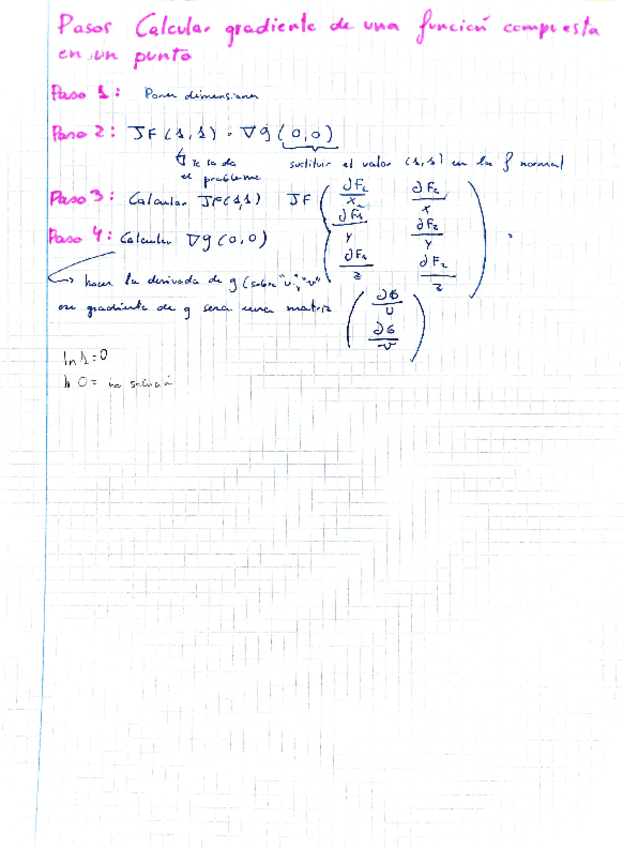 Pasos Calcular gradiente de una función compuesta
en un punto
Paso 1: Poner dimensiones
Paso 2: JF(1,1) · ∇g(0,0)
te la da
el problema
sustituir el valor (1,1) en la f normal
Paso 3: Calcular JF(1,1) JF
∂F₁/x ∂F₂/x
∂F₁/y ∂F₂/y
∂F₁/z ∂F₂/z
Paso 4: Calcular ∇g(0,0)
→ hacer la derivada de g (sobre "u", "v"
gradiente de g sera una matriz
∂G/u
∂G/v
ln 1 = 0
0 = no solución